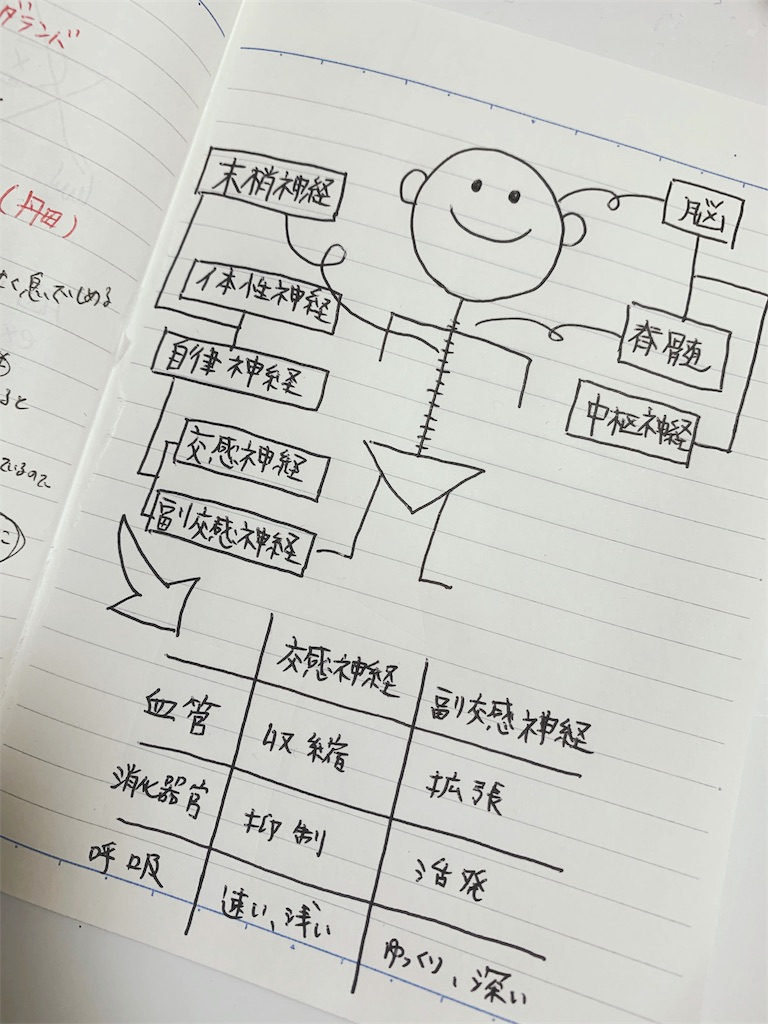 ダランド
(丹田)
末梢神経
脳
体性神経
脊髄
自律神経
中枢神経
交感神経
副交感神経
交感神経 副交感神経
血管 収縮 拡張
消化器官 抑制 活発
呼吸 速い、浅い ゆっくり、深い